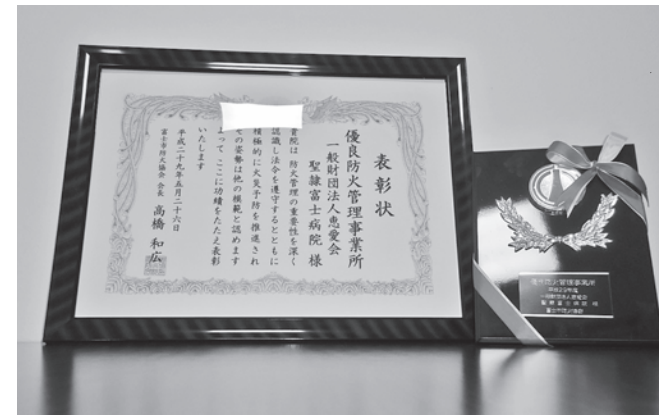 表彰状
優良防火管理事業所
一般財団法人恵愛会
聖隷富士病院 様
貴院は 防火管理の重要性を深く
認識し法令を遵守するとともに
積極的に火災予防を推進され
その姿勢は他の模範と認めます
よって ここに功績をたたえ表彰
いたします
平成二十九年五月二十六日
富士市防火協会 会長 高橋 和広
優良防火管理事業所
平成29年度
一般財団法人恵愛会
聖隷富士病院 様
富士市防火協会